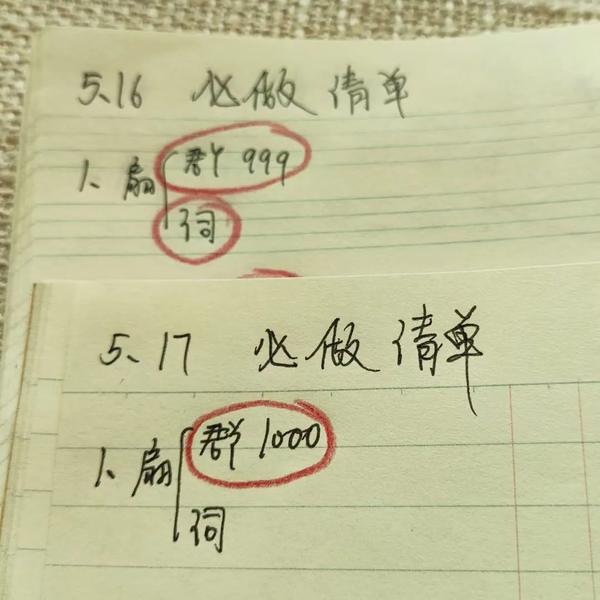 5.16 必做清单
1、扇 群 999
词
5、17 必做清单
1、扇 群 1000
词